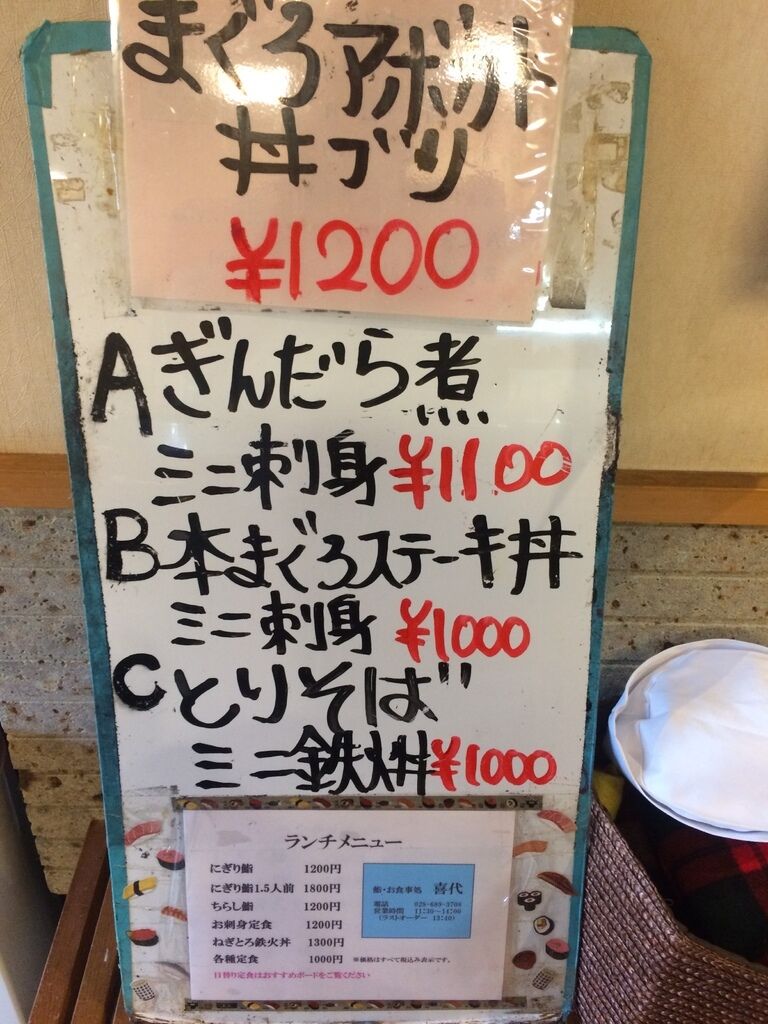 まぐろアボカド
丼ブリ
¥1200
Aぎんだら煮
ミニ刺身 ¥1100
B本まぐろステーキ丼
ミニ刺身 ¥1000
Cとりそば
ミニ鉄火丼 ¥1000
ランチメニュー
にぎり鮨 1200円
にぎり鮨1.5人前 1800円
ちらし鮨 1200円
お刺身定食 1200円
ねぎとろ鉄火丼 1300円
各種定食 1000円 ※価格はすべて税込み表示です。
日替り定食はおすすめボードをご覧ください
鮨・お食事処 喜代
電話 028-689-3708
営業時間 11:30〜14:00
(ラストオーダー 13:40)